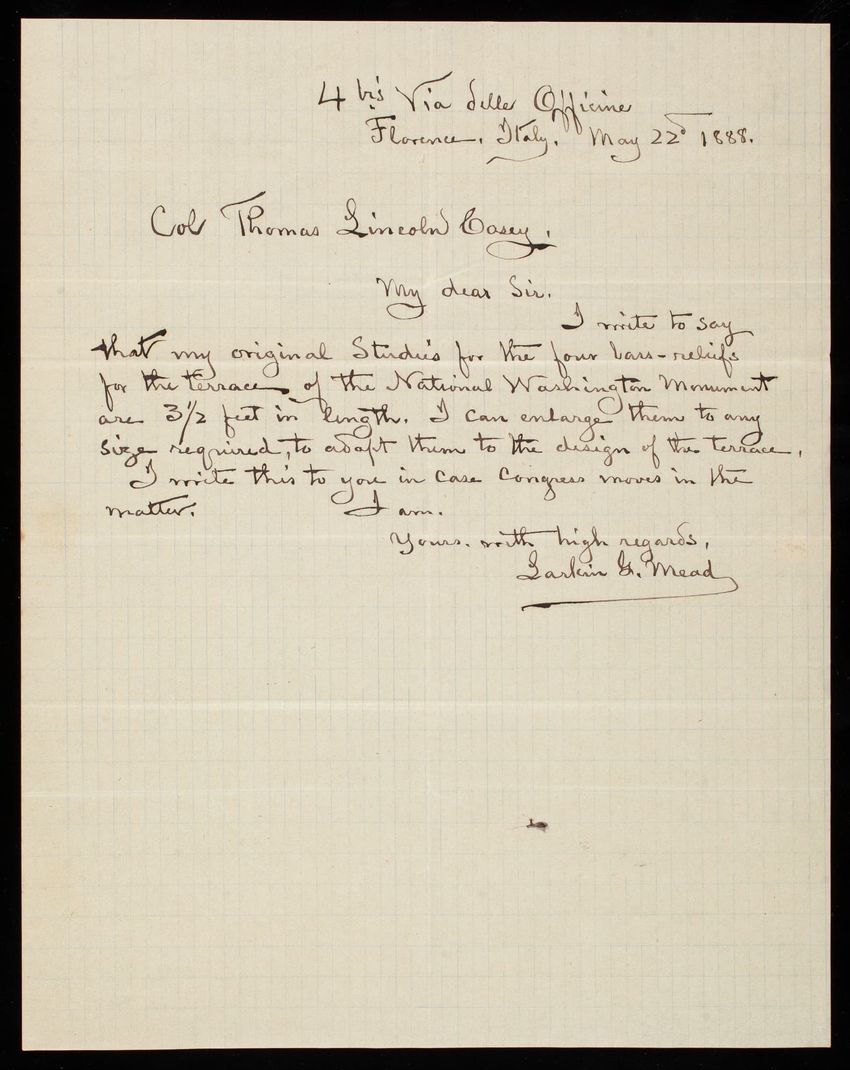 4 bis Via delle Officine
Florence, Italy, May 22d 1888.
Col Thomas Lincoln Casey,
My dear Sir.
I write to say
that my original Studies for the four bass-reliefs
for the terrace of the National Washington Monument
are 3 1/2 feet in length. I can enlarge them to any
size required, to adapt them to the design of the terrace,
I write this to you in case Congress moves in the
matter. I am.
Yours. with high regards,
Larkin G. Mead